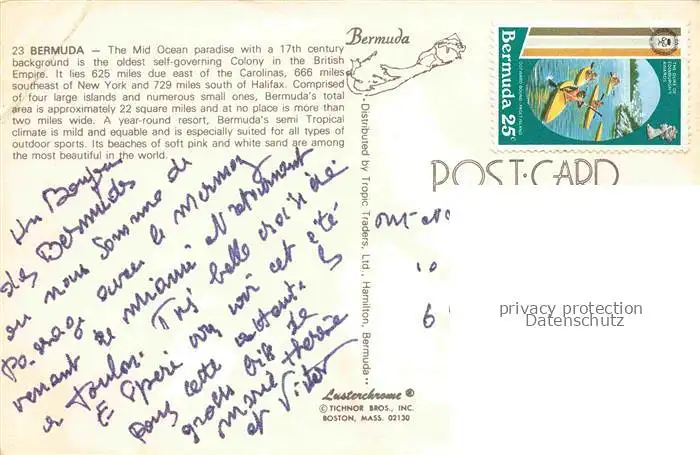 23 BERMUDA — The Mid Ocean paradise with a 17th century
background is the oldest self-governing Colony in the British
Empire. It lies 625 miles due east of the Carolinas, 666 miles
southeast of New York and 729 miles south of Halifax. Comprised
of four large islands and numerous small ones, Bermuda's total
area is approximately 22 square miles and at no place is more than
two miles wide. A year-round resort, Bermuda's semi Tropical
climate is mild and equable and is especially suited for all types of
outdoor sports. Its beaches of soft pink and white sand are among
the most beautiful in the world.
Un Bonjour
des Bermudes
ou nous somme de
Passage avec le Mermoz
venant de Miami et retournant
a Toulon. Très belle croisière
E Speré vous voir cet été
pour cette
gross bis de
marie therèse
et Victor
Bermuda
Distributed by Tropic Traders, Ltd., Hamilton, Bermuda
Lusterchrome ®
© TICHNOR BROS., INC.
BOSTON, MASS. 02130
POST-CARD
Bermuda 25c
OUTWARD BOUND, PAGET ISLAND
THE DUKE OF
EDINBURGH'S
AWARDS
10
6
privacy protection
Datenschutz